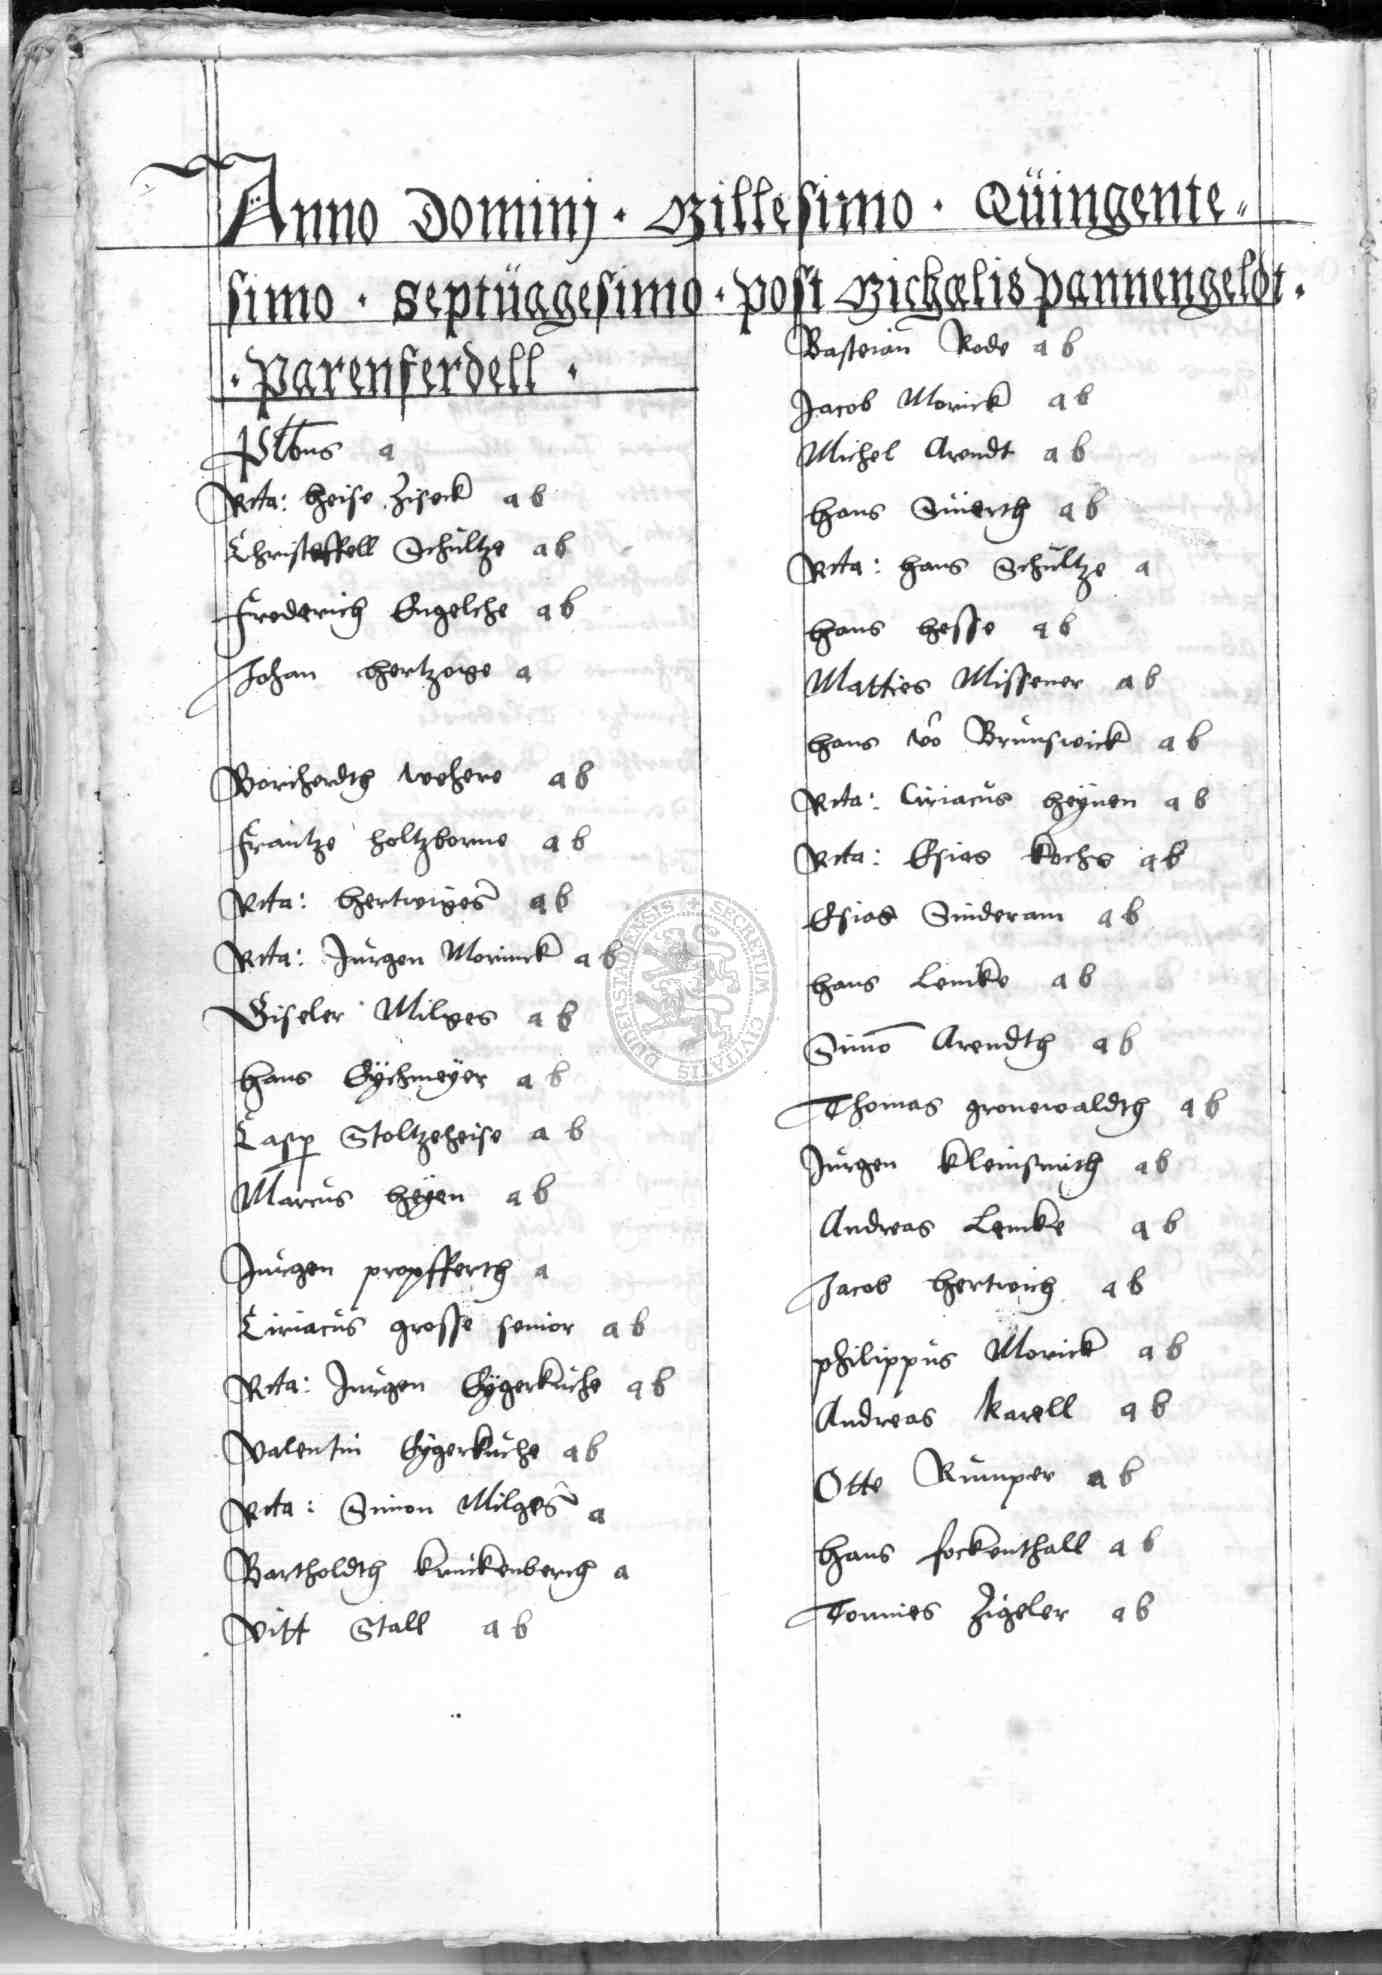 Anno Dominj · Millesimo · Qüingente„
simo · Septüagesimo · post Michaelis pannengeldt ·
· Parenferdell ·
Plbnus a
Rcta: Heise Ziseck a b
Christoffell Schultze a b
Frederich Engelche a b
Johan Hertzoge a
Borcherdth Wehere a b
Frantze Holtzborne a b
Rcta: Hertwiges a b
Rcta: Jurgen Morinck a b
Giseler Milges a b
Hans Eÿchmeÿer a b
Casp Stoltzeheise a b
Marcus Heÿen a b
Jurgen propfferth a
Ciriacus grosse senior a b
Rcta: Jurgen Eÿgerkuche a b
Valentin Eÿgerkuche a b
Rcta: Simon Milges a
Bartholdth Kruckenberch a
Vitt Stall a b
Basteian Rode a b
Jacob Morick a b
Michel Arendt a b
Hans Siuerth a b
Rcta: Hans Schultze a
Hans Hesse a b
Matties Missener a b
Hans vo Brunswick a b
Rcta: Ciriacus Heÿnen a b
Rcta: Esias Kochs a b
Esias Sinderam a b
Hans Lemke a b
Simo Arendth a b
Thomas gronewaldth a b
Jurgen Kleinsmith a b
Andreas Lemke a b
Jacob Hertwich a b
philippus Morick a b
Andreas Karell a b
Otte Rumper a b
Hans fockenthall a b
Tonnies Zigeler a b
SECRETUM CIVITATIS DUDERSTADIENSIS